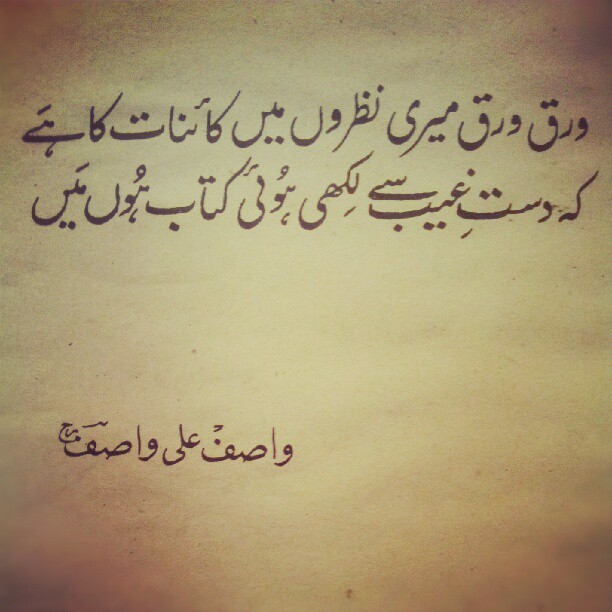 ورق ورق میری نظروں میں کائنات کا ہَے
کہ دستِ غیب سے لِکھی ہُوئی کتاب ہُوں مَیں
واصفؒ علی واصفؔ